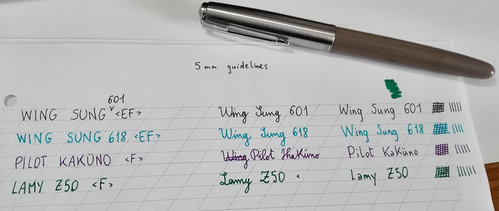 5 mm guidelines
601
WING SUNG <EF> Wing Sung 601 Wing Sung 601
WING SUNG 618 <EF> Wing Sung 618 Wing Sung 618
PILOT KAKÜNO <F> Pilot Kaküno Pilot Kaküno
LAMY Z50 <F> Lamy Z50 < Lamy Z50